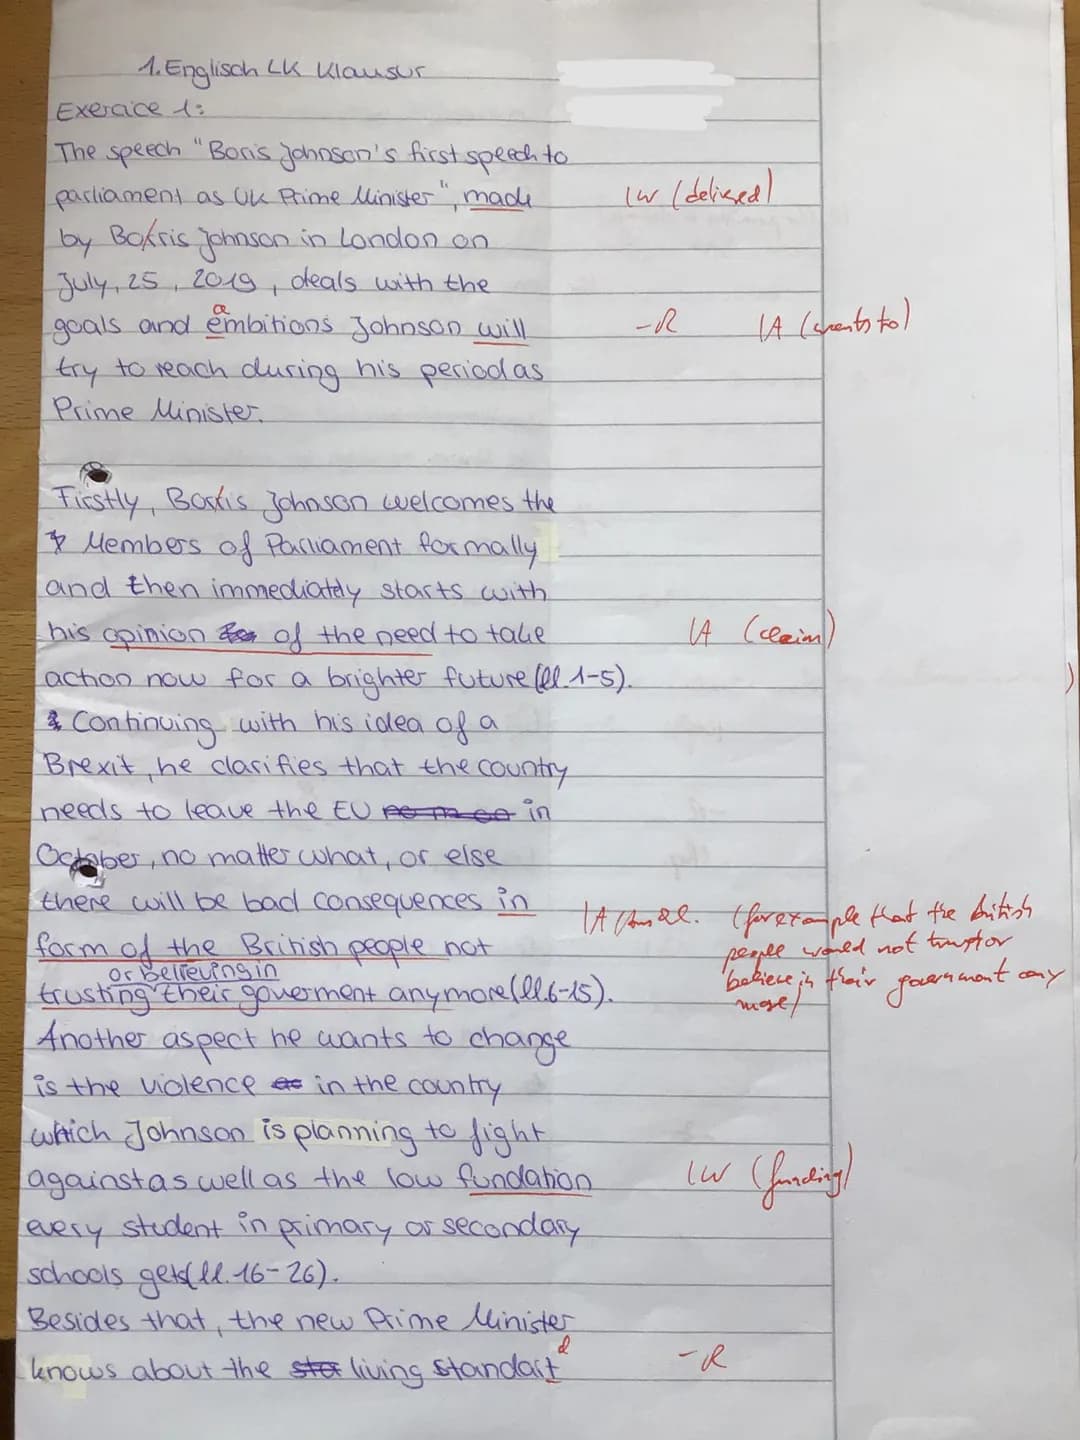 1. Englisch LK Klausur
Exercice 1:
The speech "Boris Johnson's first speech to
parliament as UK Prime Minister", made
IW (delivered)
by Boris Johnson in London on
July, 25, 2019, deals with the
goals and embitions Johnson will
a
-R IA (wants to)
try to reach during his period as
Prime Minister.
Firstly, Boris Johnson welcomes the
Members of Parliament formally
and then immediately starts with
his opinion of the need to take
IA (claim)
action now for a brighter future (ll. 1-5).
Continuing with his idea of a
Brexit, he clarifies that the country
needs to leave the EU in
October, no matter what, or else
there will be bad consequences in
IA (for example that the british
form of the British people not
people would not trust or
or believing in
trusting their goverment anymore (ll. 6-15).
believe in their government any
more)
Another aspect he wants to change
is the violence in the country
which Johnson is planning to fight
against as well as the low fundation
IW (funding)
every student in primary or secondary
schools gets (ll. 16-26).
Besides that, the new Prime Minister
knows about the living standart
d
-R